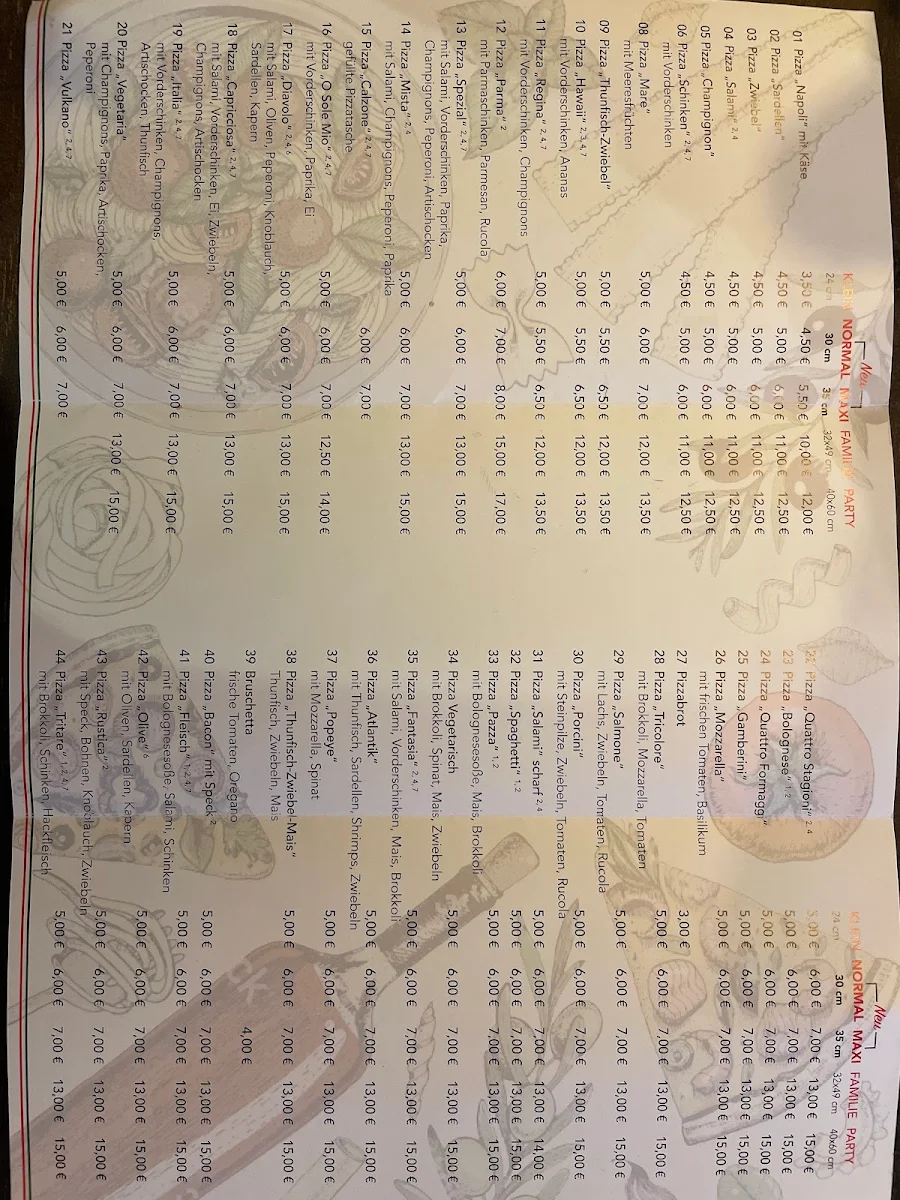 Neu
KLEIN NORMAL MAXI FAMILIE PARTY
24 cm 30 cm 35 cm 32x49 cm 40x60 cm
01 Pizza „Napoli“ mit Käse 3,50 € 4,50 € 5,50 € 10,00 € 12,00 €
02 Pizza „Sardellen“ 4,50 € 5,00 € 6,00 € 11,00 € 12,50 €
03 Pizza „Zwiebel“ 4,50 € 5,00 € 6,00 € 11,00 € 12,50 €
04 Pizza „Salami“ 2, 4 4,50 € 5,00 € 6,00 € 11,00 € 12,50 €
05 Pizza „Champignon“ 4,50 € 5,00 € 6,00 € 11,00 € 12,50 €
06 Pizza „Schinken“ 2,4,7 4,50 € 5,00 € 6,00 € 11,00 € 12,50 €
mit Vorderschinken
08 Pizza „Mare“ 5,00 € 6,00 € 7,00 € 12,00 € 13,50 €
mit Meeresfrüchten
09 Pizza „Thunfisch-Zwiebel“ 5,00 € 5,50 € 6,50 € 12,00 € 13,50 €
10 Pizza „Hawaii“ 2,3,4,7 5,00 € 5,50 € 6,50 € 12,00 € 13,50 €
mit Vorderschinken, Ananas
11 Pizza „Regina“ 2,4,7 5,00 € 5,50 € 6,50 € 12,00 € 13,50 €
mit Vorderschinken, Champignons
12 Pizza „Parma“ 2 6,00 € 7,00 € 8,00 € 15,00 € 17,00 €
mit Parmaschinken, Parmesan, Rucola
13 Pizza „Spezial“ 2,4,7 5,00 € 6,00 € 7,00 € 13,00 € 15,00 €
mit Salami, Vorderschinken, Paprika,
Champignons, Peperoni, Artischocken
14 Pizza „Mista“ 2,4 5,00 € 6,00 € 7,00 € 13,00 € 15,00 €
mit Salami, Champignons, Peperoni, Paprika
15 Pizza „Calzone“ 2,4,7 6,00 € 7,00 €
gefüllte Pizzatasche
16 Pizza „O Sole Mio“ 2,4,7 5,00 € 6,00 € 7,00 € 12,50 € 14,00 €
mit Vorderschinken, Paprika, Ei
17 Pizza „Diavolo“ 2,4,6 5,00 € 6,00 € 7,00 € 13,00 € 15,00 €
mit Salami, Oliven, Peperoni, Knoblauch,
Sardellen, Kapern
18 Pizza „Capricciosa“ 2,4,7 5,00 € 6,00 € 7,00 € 13,00 € 15,00 €
mit Salami, Vorderschinken, Ei, Zwiebeln,
Champignons, Artischocken
19 Pizza „Italia“ 2,4,7 5,00 € 6,00 € 7,00 € 13,00 € 15,00 €
mit Vorderschinken, Champignons,
Artischocken, Thunfisch
20 Pizza „Vegetaria“ 5,00 € 6,00 € 7,00 € 13,00 € 15,00 €
mit Champignons, Paprika, Artischocken,
Peperoni
21 Pizza „Vulkano“ 2,4,7 5,00 € 6,00 € 7,00 €
Neu
KLEIN NORMAL MAXI FAMILIE PARTY
24 cm 30 cm 35 cm 32x49 cm 40x60 cm
22 Pizza „Quattro Stagioni“ 2, 4 5,00 € 6,00 € 7,00 € 13,00 € 15,00 €
23 Pizza „Bolognese“ 1,2 5,00 € 6,00 € 7,00 € 13,00 € 15,00 €
24 Pizza „Quattro Formaggi“ 5,00 € 6,00 € 7,00 € 13,00 € 15,00 €
25 Pizza „Gamberini“ 5,00 € 6,00 € 7,00 € 13,00 € 15,00 €
26 Pizza „Mozzarella“ 5,00 € 6,00 € 7,00 € 13,00 € 15,00 €
mit frischen Tomaten, Basilikum
27 Pizzabrot 3,00 €
28 Pizza „Tricolore“ 5,00 € 6,00 € 7,00 € 13,00 € 15,00 €
mit Brokkoli, Mozzarella, Tomaten
29 Pizza „Salmone“ 5,00 € 6,00 € 7,00 € 13,00 € 15,00 €
mit Lachs, Zwiebeln, Tomaten, Rucola
30 Pizza „Porcini“ 5,00 € 6,00 € 7,00 € 13,00 € 15,00 €
mit Steinpilze, Zwiebeln, Tomaten, Rucola
31 Pizza „Salami“ scharf 2,4 5,00 € 6,00 € 7,00 € 13,00 € 14,00 €
32 Pizza „Spaghetti“ 1,2 5,00 € 6,00 € 7,00 € 13,00 € 15,00 €
33 Pizza „Pazza“ 1,2 5,00 € 6,00 € 7,00 € 13,00 € 15,00 €
mit Bolognesesoße, Mais, Brokkoli
34 Pizza Vegetarisch 5,00 € 6,00 € 7,00 € 13,00 € 15,00 €
mit Brokkoli, Spinat, Mais, Zwiebeln
35 Pizza „Fantasia“ 2,4,7 5,00 € 6,00 € 7,00 € 13,00 € 15,00 €
mit Salami, Vorderschinken, Mais, Brokkoli
36 Pizza „Atlantik“ 5,00 € 6,00 € 7,00 € 13,00 € 15,00 €
mit Thunfisch, Sardellen, Shrimps, Zwiebeln
37 Pizza „Popeye“ 5,00 € 6,00 € 7,00 € 13,00 € 15,00 €
mit Mozzarella, Spinat
38 Pizza „Thunfisch-Zwiebel-Mais“ 5,00 € 6,00 € 7,00 € 13,00 € 15,00 €
Thunfisch, Zwiebeln, Mais
39 Bruschetta 4,00 €
frische Tomaten, Oregano
40 Pizza „Bacon“ mit Speck 2 5,00 € 6,00 € 7,00 € 13,00 € 15,00 €
41 Pizza „Fleisch“ 1,2,4,7 5,00 € 6,00 € 7,00 € 13,00 € 15,00 €
mit Bolognesesoße, Salami, Schinken
42 Pizza „Olive“ 6 5,00 € 6,00 € 7,00 € 13,00 € 15,00 €
mit Oliven, Sardellen, Kapern
43 Pizza „Rustica“ 2 5,00 € 6,00 € 7,00 € 13,00 € 15,00 €
mit Speck, Bohnen, Knoblauch, Zwiebeln
44 Pizza „Tritare“ 1,2,4,7 5,00 € 6,00 € 7,00 € 13,00 € 15,00 €
mit Brokkoli, Schinken, Hackfleisch